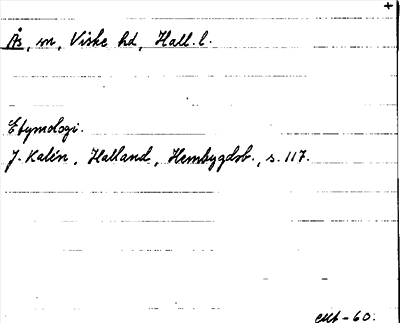 +
Ås, sn, Viske hd, Hall. l.
Etymologi.
J. Kalén, Halland, Hembygdsb., s. 117.
-60.